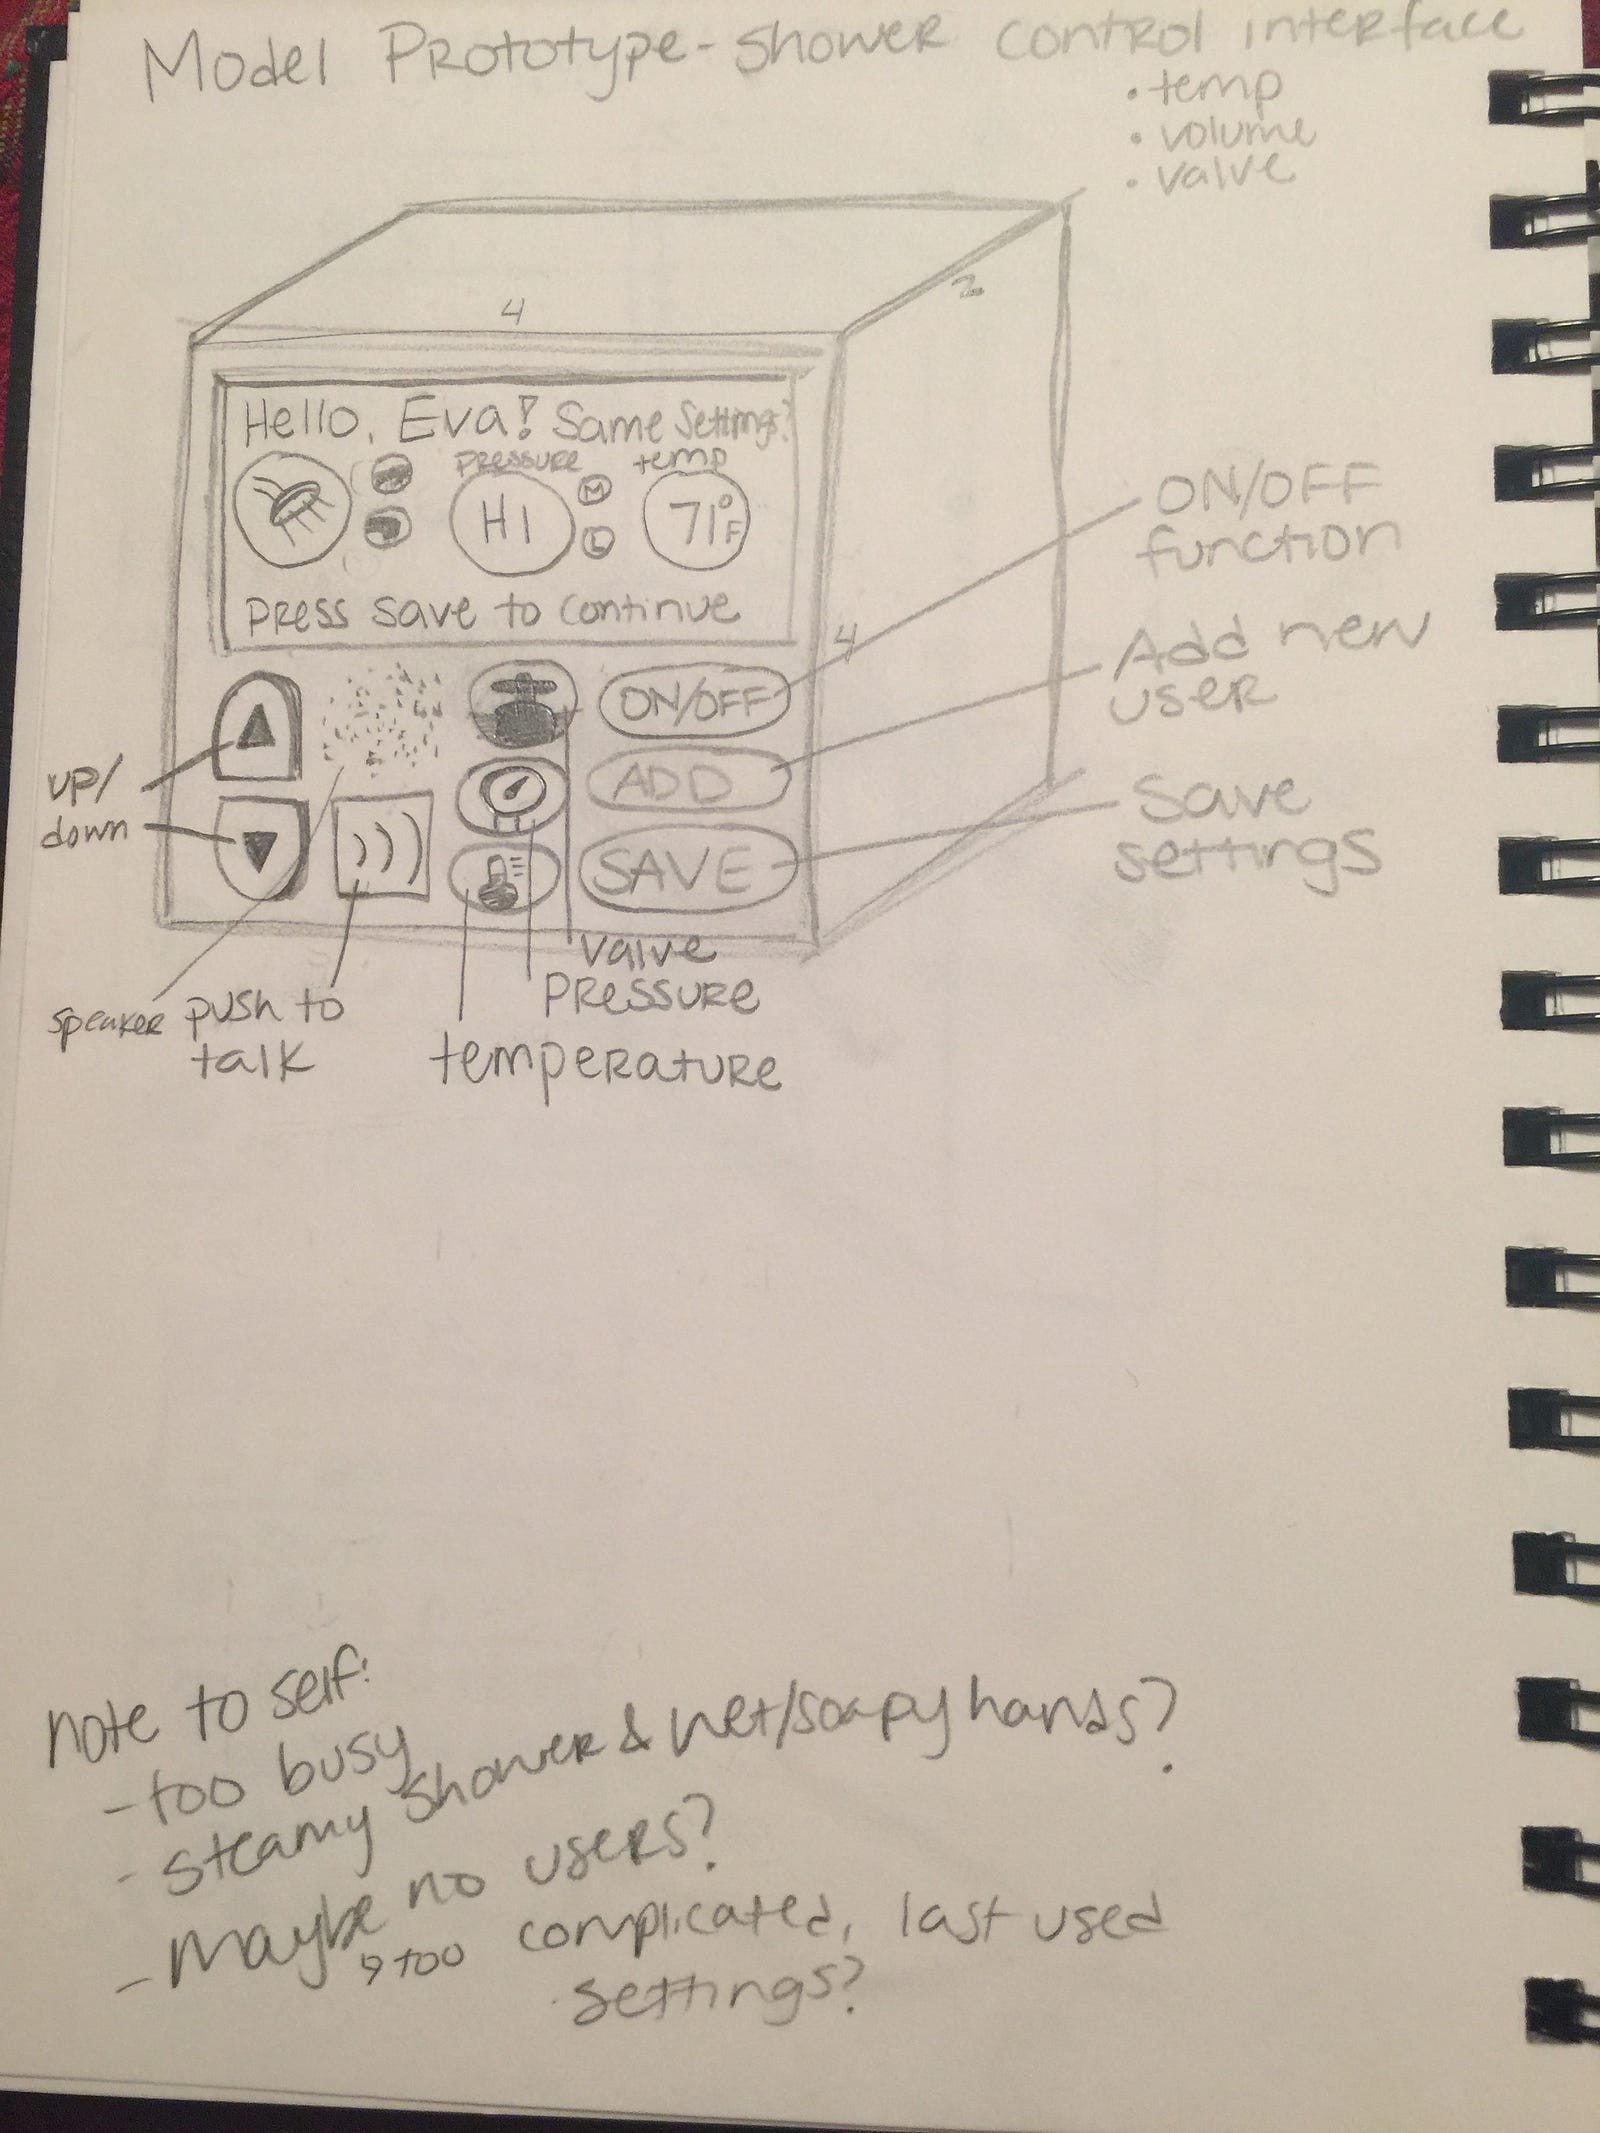 Model Prototype - shower control interface
• temp
• volume
• valve
4
2
4
Hello, Eva! Same Settings?
pressure
temp
HI
M
L
71°F
press save to continue
ON/OFF
ADD
SAVE
ON/OFF
function
Add new
user
Save
settings
up/
down
speaker
push to
talk
valve
pressure
temperature
note to self:
- too busy
- steamy shower & wet/soapy hands?
- Maybe no users?
↳ too complicated, last used
settings?